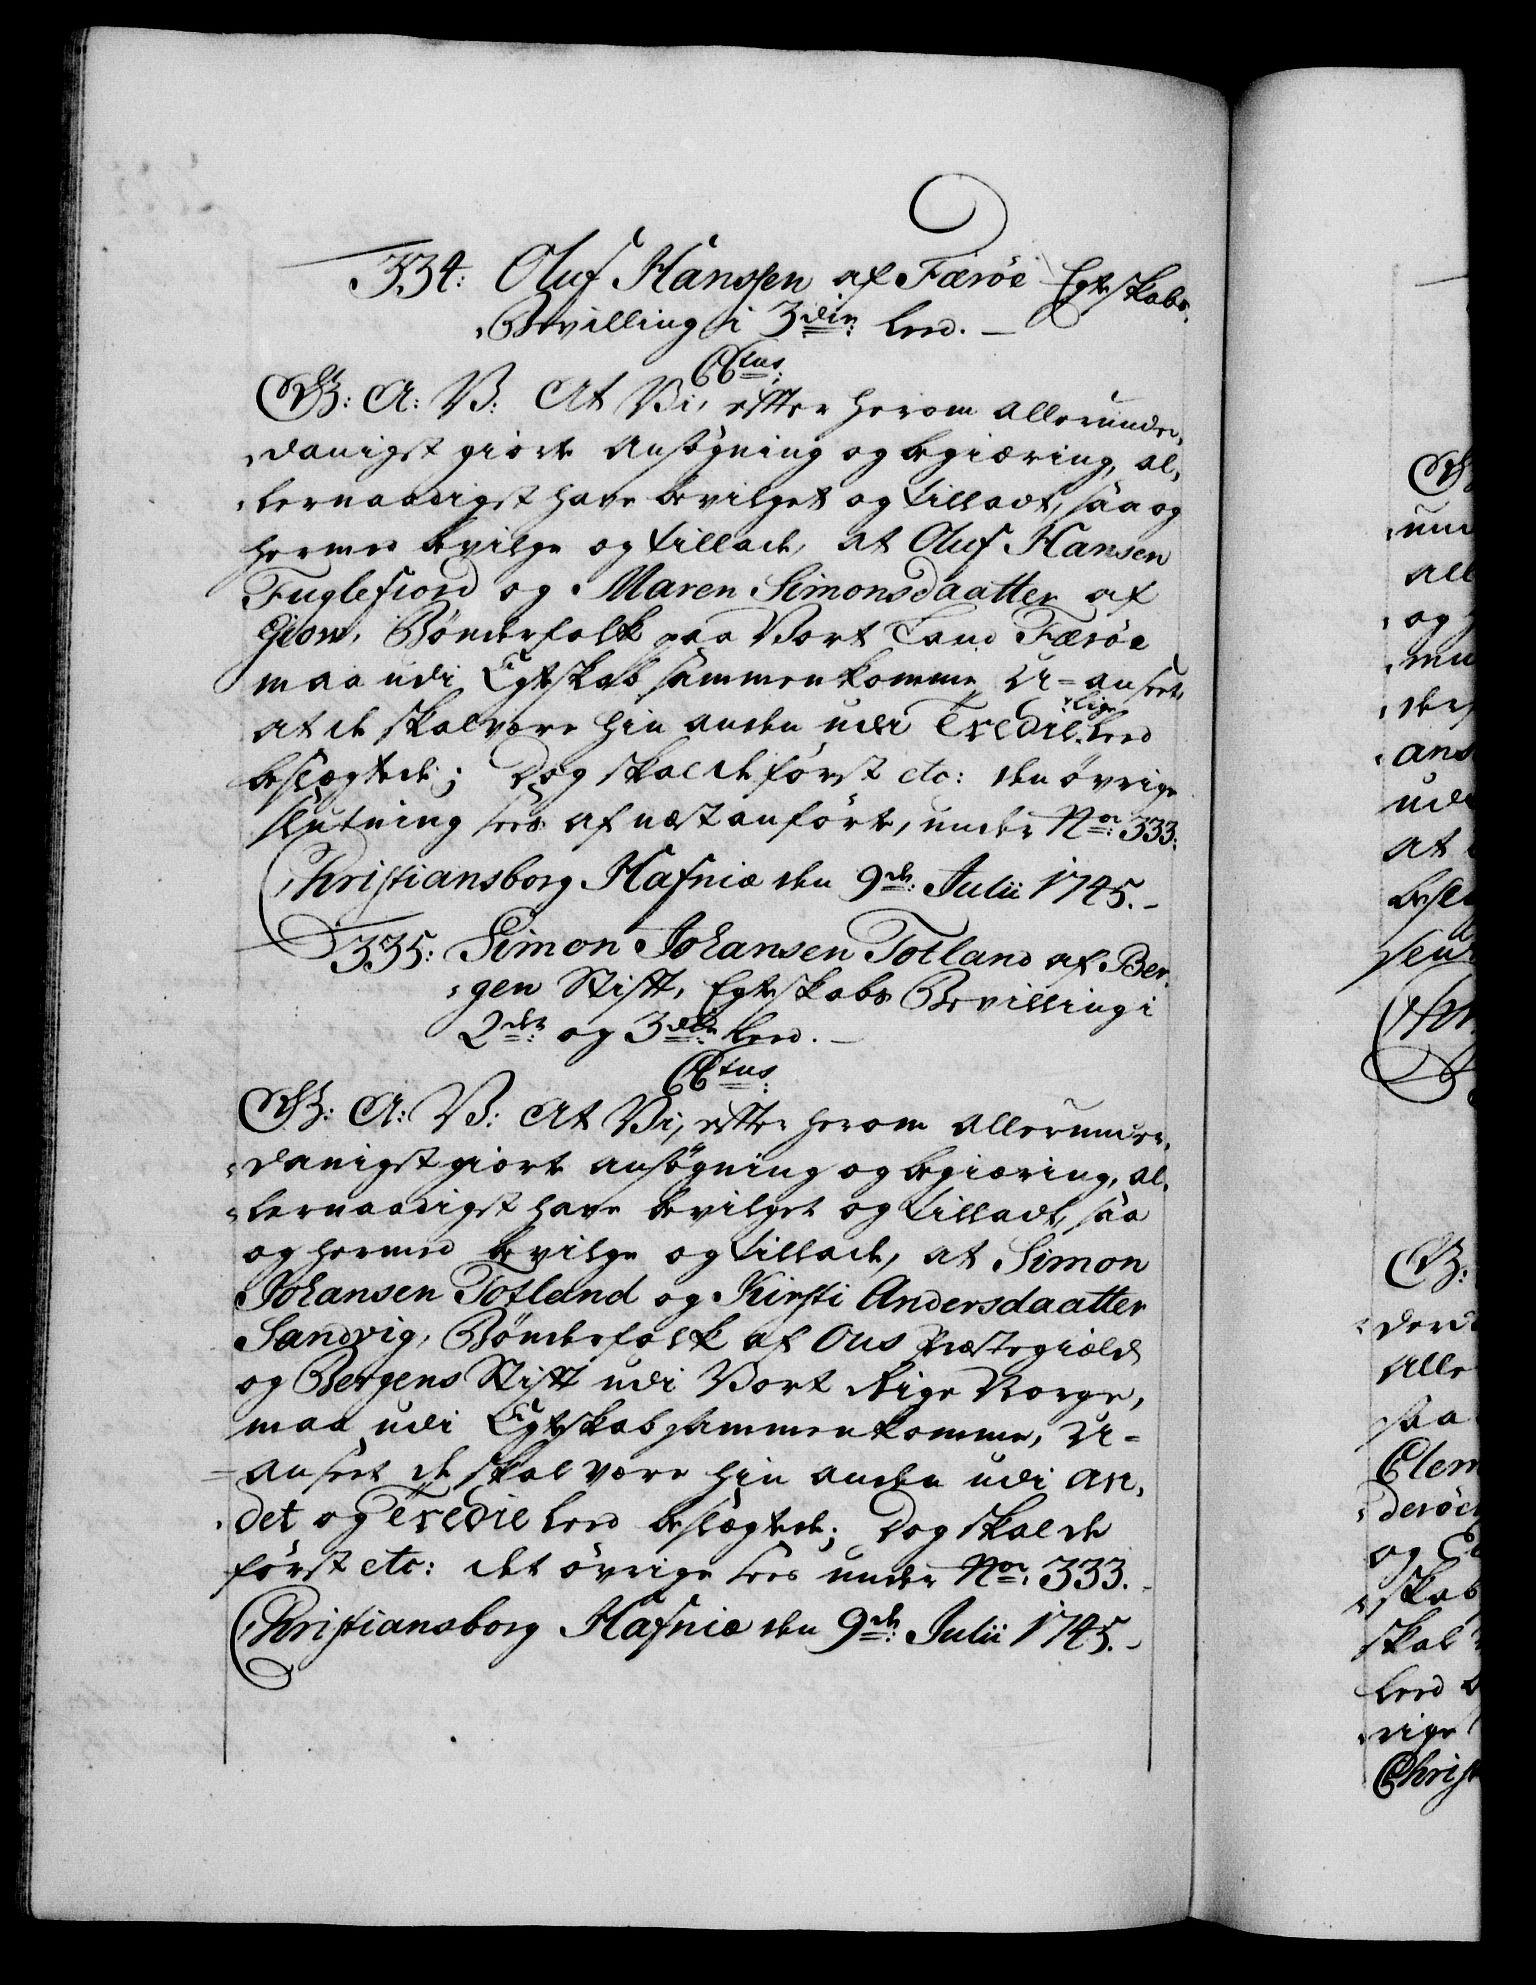 334: Oluf Hanssen af Færöe Egteskabs
Bevilling i 3die: Leed. —
C6tus:
G: A: V: At Vi, efter herom allerunder,
danigst giorte Ansögning og begiæring, al,
lernaadigst have bevilget og tilladt, saa og
hermed bevilge og tillade, at Oluf Hansen
Fuglefiord og Maren Simonsdaatter af
Giow, Bönderfolk paa Vort Land Færöe
maa udi Egteskab sammenkomme, U=anseet
at de skal være hin anden udi Tredie lige Leed
beslægtede; Dog skal de först etc: den övrige
slutning sees af næst anförte, under No: 333:
Christiansborg Hafniæ den 9de: Julii 1745. —
335: Simon Johansen Totland af Ber,
gen Stift, Egteskabs Bevilling i
2den: og 3die: Leed. —
C6tus:
G: A: V: At Vi, efter herom allerunder,
danigst giorte ansögning og begiæring, al,
lernaadigst have bevilget og tilladt, saa
og hermed bevilge og tillade, at Simon
Johansen Totland og Kirsti Andersdaatter
Sandvig, Bönderfolk af Ous Præstegield
og Bergens Stift udi Vort Rige Norge,
maa udi Egteskab sammenkomme, U=
=anseet de skal være hin anden udi an,
det og Tredie Leed beslægtede; Dog skal de
först etc: det övrige sees under No: 333. —
Christiansborg Hafniæ den 9de: Julii 1745. —